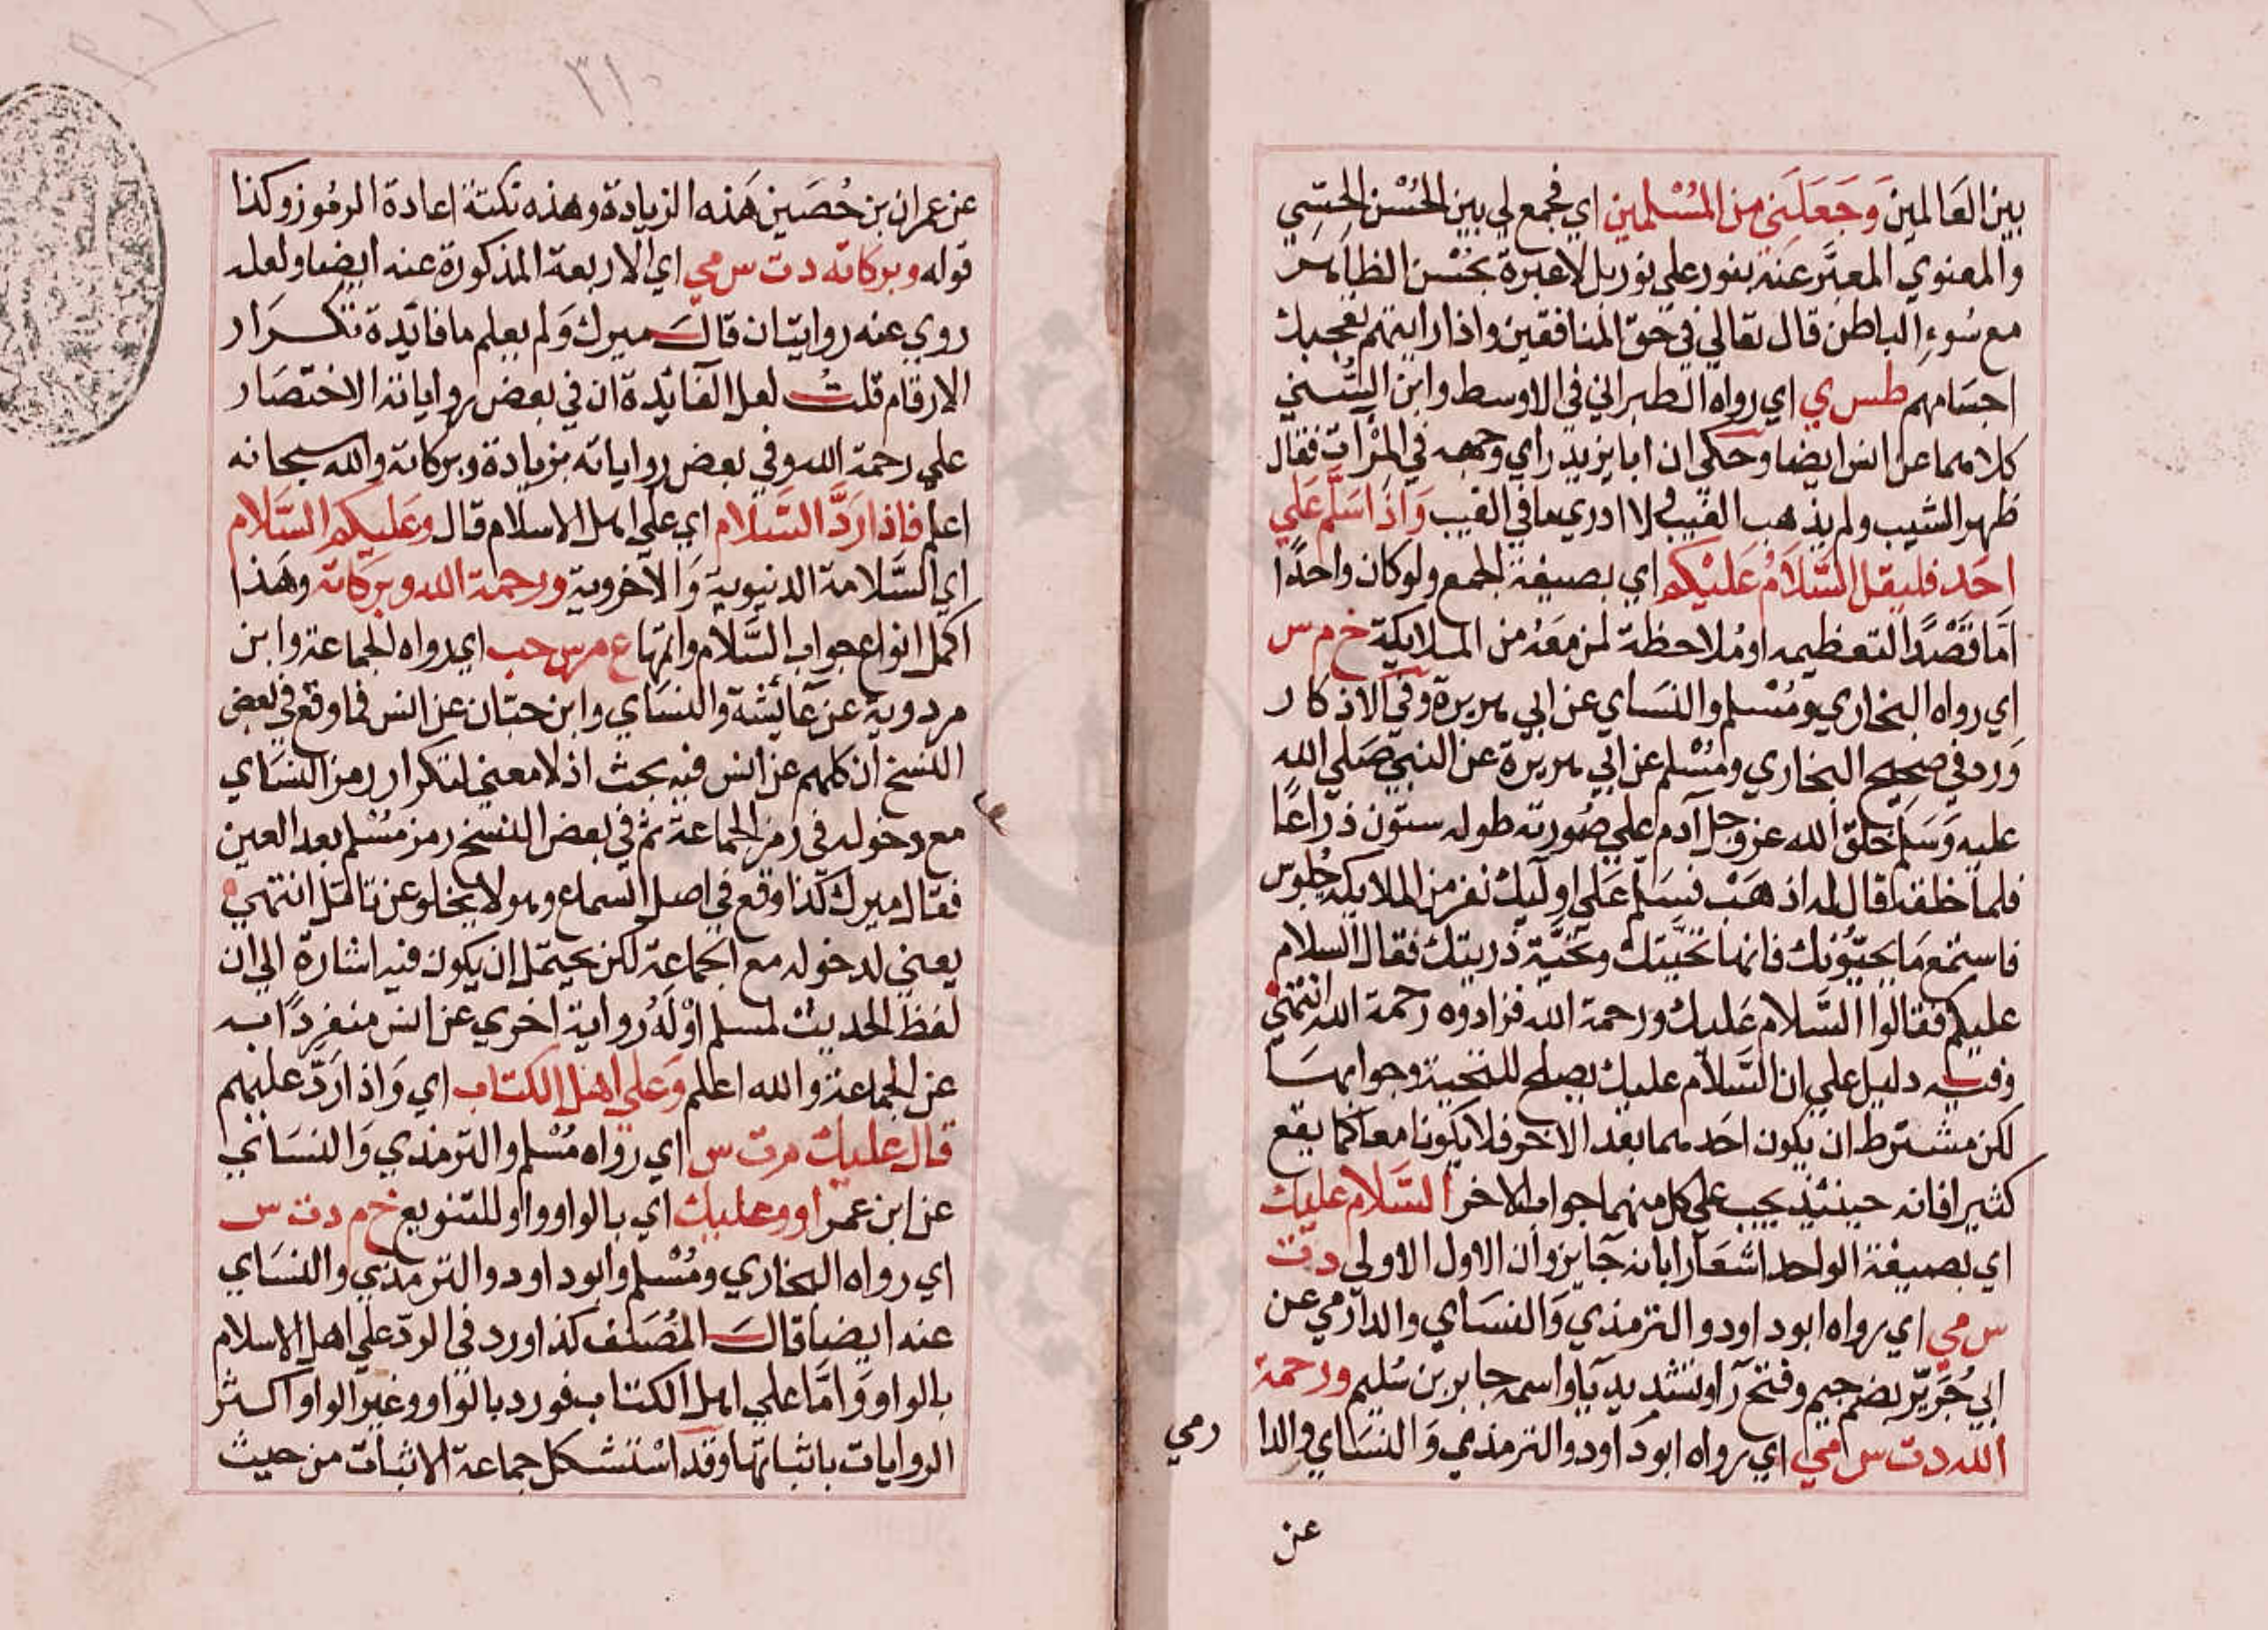 بين العَالمينَ وَجَعَلَني من المُسْلمين اي فجمع لي بين الحُسْن الحِسّي
والمعنوي المعبَّر عنه بنور علي نور بل لاعبرة بحُسْن الظاهر
مع سُوءِ الباطن قال تعالي في حَقّ المنافقين واذا رايتهم تعجبك
اجسَامهم طس ي اي رواه الطبراني في الاوسط وابن السُّنّي
كلاهما عن انس ايضا وحكي ان ابا يزيد راي وجهه في المرْآت فقال
ظهر الشيب ولم يذهب العَيب ولا ادري ما في الغيب وَاذَا سَلّم عَلي
احَد فليقل السَّلاَمُ عَليْكم اي بصيغة الجمع ولو كان واحدًا
امّا قصْدًا لتعظيمه او مُلاحظة لمن مَعَهُ من الملايكة خ م س
اي رواه البخاري ومُسْلم والنسَاي عن ابي هريرة وفي الاذكار
وَرد في صحيح البخاري ومُسْلم عن ابي هريرة عن النبي صَلي الله
عليه وَسَلم خلق الله عز وجل آدم علي صُورته طوله ستّون ذراعًا
فلما خلقه قال له اذهَبْ فسَلّم عَلي اوليك نفر من الملايكه جُلوس
فاستمع مَا يحيّونك فانها تحيّتك وتحيّة ذريتك فقال السلام
عليكم فقالوا السَّلام عَليك ورحمة الله فزادوه رحمة الله انتهي
وفيه دليل علي ان السَّلام عليك يصلح للتحية وجوابهَا
لكن مشترط ان يكون احَدهما بعد الاخر فلا يكونا معا كما يقع
كثيرا فانه حينئذ يجب علي كل منهما جواب الاخر السَّلام عليك
اي بصيغة الواحد اشعَارا بانه جَايز وان الاول الاولي د ت
س مي اي رواه ابو داود والترمذي وَالنسَاي والدارمي عن
ابي جُرَيّ بضم جيم وفتح رآ وتشديد يآ واسمه جابر بن سُليم ورحمة
الله د ت س مي اي رواه ابو دَاود والترمذي وَالنسَاي والدا
رمي
عن
٣١٠
عن عمران بن حُصَين هَذه الزيادة وهذه نكتة اعادة الرمُوز وكذا
قوله وبركاته د ت س مي اي الاربعة المذكورة عنه ايضا ولعله
روي عنه روايتان قال ميرك وَلم يعلم ما فائدة تكرَار
الارقام قلت لعل الفائدة ان في بعض رواياته الاختصَار
علي رحمة الله وفي بعض رواياته بزيادة وبركاته والله سبحانه
اعلم فاذا رَدَّ السَّلام اي علي اهل الاسلام قال وعَليكم السَّلام
اي السَّلامة الدنيوية وَالاخروية ورحمة الله وبرَكاته وهَذا
اكمل انواع جواب السَّلام واتمها ع مر س حب اي رواه الجماعة وابن
مردوية عن عَائشة والنسَاي وابن حبّان عن انس فما وقع في بعض
النسخ ان كلهم عن انس فيه بحث اذ لا معني لتكرار رمز النسَاي
مع دخوله في رَمز الجماعة ثم في بعض النسخ رمز مُسْلم بعد العين
فقال ميرك كَذا وقع في اصل السماع وهو لا يخلو عن تامّل انتهي
يعني لدخوله مع الجماعة لكن يحتمل ان يكون فيه اشارة الي ان
لفظ الحديث لمسلم اوْ لَهُ رواية اخري عن انس منفردًا به
عن الجماعة والله اعلم وَعلي اهل الكتاب اي وَاذا رَدّ عليهم
قال عليك م ت س اي رواه مُسْلم والترمذي وَالنسَائي
عن ابن عمر او وعليك اي بالواو واو للتنويع خ م د ت س
اي رواه البخاري ومُسْلم وابو داود والترمذي والنسَاي
عنه ايضا قالَ المُصَنف كذا ورد في الردّ علي اهل الاسلام
بالواو وَامّا علي اهل الكتاب فورد بالواو وغير الواو اكثر
الروايات باثباتها وقد اسْتشكل جماعة الاثبات من حيث